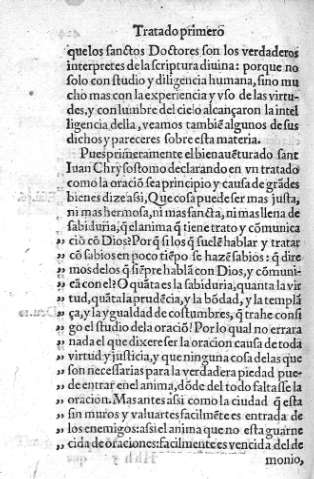 Tratado primero
que los sanctos Doctores son los verdaderos
interpretes de la scriptura diuina: porque no
solo con studio y diligencia humana, sino mu
cho mas con la experiencia y vso de las virtu-
des, y con lumbre del cielo alcançaron la intel
ligencia della, veamos tambiẽ algunos de sus
dichos y pareceres sobre esta materia.
Pues primeramente el bienauẽturado sant
Iuan Chrysostomo declarando en vn tratado
como la oraciõ sea principio y causa de grãdes
bienes dize assi, Que cosa puede ser mas justa,
ni mas hermosa, ni mas sancta, ni mas llena de
sabiduria, q̃ el anima q̃ tiene trato y cõmunica
ciõ cõ Dios? Porq̃ si los q̃ suelẽ hablar y tratar
„ cõ sabios en poco tiẽpo se hazẽ sabios: q̃ dire
„ mos de los q̃ siẽpre hablã con Dios, y cõmuni-
„ cã con el? O quãta es la sabiduria, quanta la vir
„ tud, quãta la prudẽcia, y la bõdad, y la templã
„ ça, y la ygualdad de costumbres, q̃ trahe consi
„ go el studio de la oraciõ! Por lo qual no errara
„ nada el que dixere ser la oracion causa de toda
„ virtud y justicia, y que ninguna cosa de las que
„ son necessarias para la verdadera piedad pue-
„ de entrar en el anima, dõde del todo faltasse la
„ oracion. Mas antes assi como la ciudad q̃ esta
„ sin muros y valuartes facilmẽte es entrada de
„ los enemigos: assi el anima que no esta guarne
„ cida de oraciones: facilmente es vencida del de
monio,
Hhh y